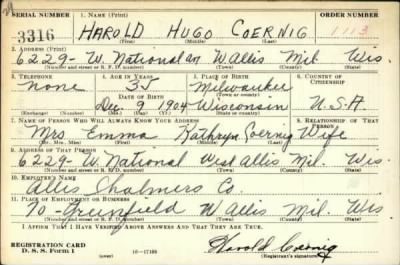 SERIAL NUMBER 1. NAME (Print) ORDER NUMBER
3316 HAROLD HUGO COERNIG 1113
(First) (Middle) (Last)
2. ADDRESS (Print)
6229- W. National av W. Allis Mil. Wis.
(Number and street or R. F. D. number) (Town) (County) (State)
3. TELEPHONE 4. AGE IN YEARS 5. PLACE OF BIRTH 6. COUNTRY OF CITIZENSHIP
none 35 Milwaukee
DATE OF BIRTH
Dec. 9 1904 Wisconsin U.S.A.
(Exchange) (Number) (Mo.) (Day) (Yr.) (State or country)
7. NAME OF PERSON WHO WILL ALWAYS KNOW YOUR ADDRESS 8. RELATIONSHIP OF THAT PERSON
Mrs Emma Kathryn Coernig Wife
(Mr., Mrs., Miss) (First) (Middle) (Last)
9. ADDRESS OF THAT PERSON
6229- W. National West Allis Mil. Wis.
(Number and street or R. F. D. number) (Town) (County) (State)
10. EMPLOYER'S NAME
Allis Chalmers Co.
11. PLACE OF EMPLOYMENT OR BUSINESS
70- Greenfield W Allis Mil. Wis
(Number and street or R. F. D. number) (Town) (County) (State)
I AFFIRM THAT I HAVE VERIFIED ABOVE ANSWERS AND THAT THEY ARE TRUE.
REGISTRATION CARD
D. S. S. Form 1 16-17105 Harold Coernig
(Registrant's signature)